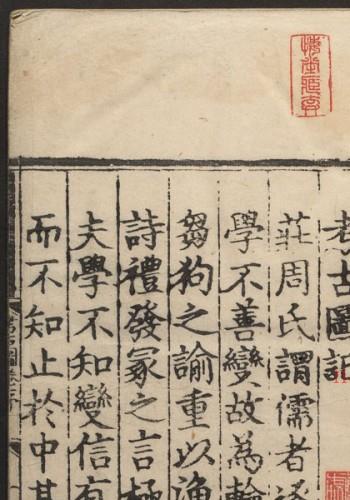 考古圖記
莊周氏謂儒者逐
學不善變故為
芻狗之諭重以漁
詩禮發冢之言極
夫學不知變信有
而不知止於中其